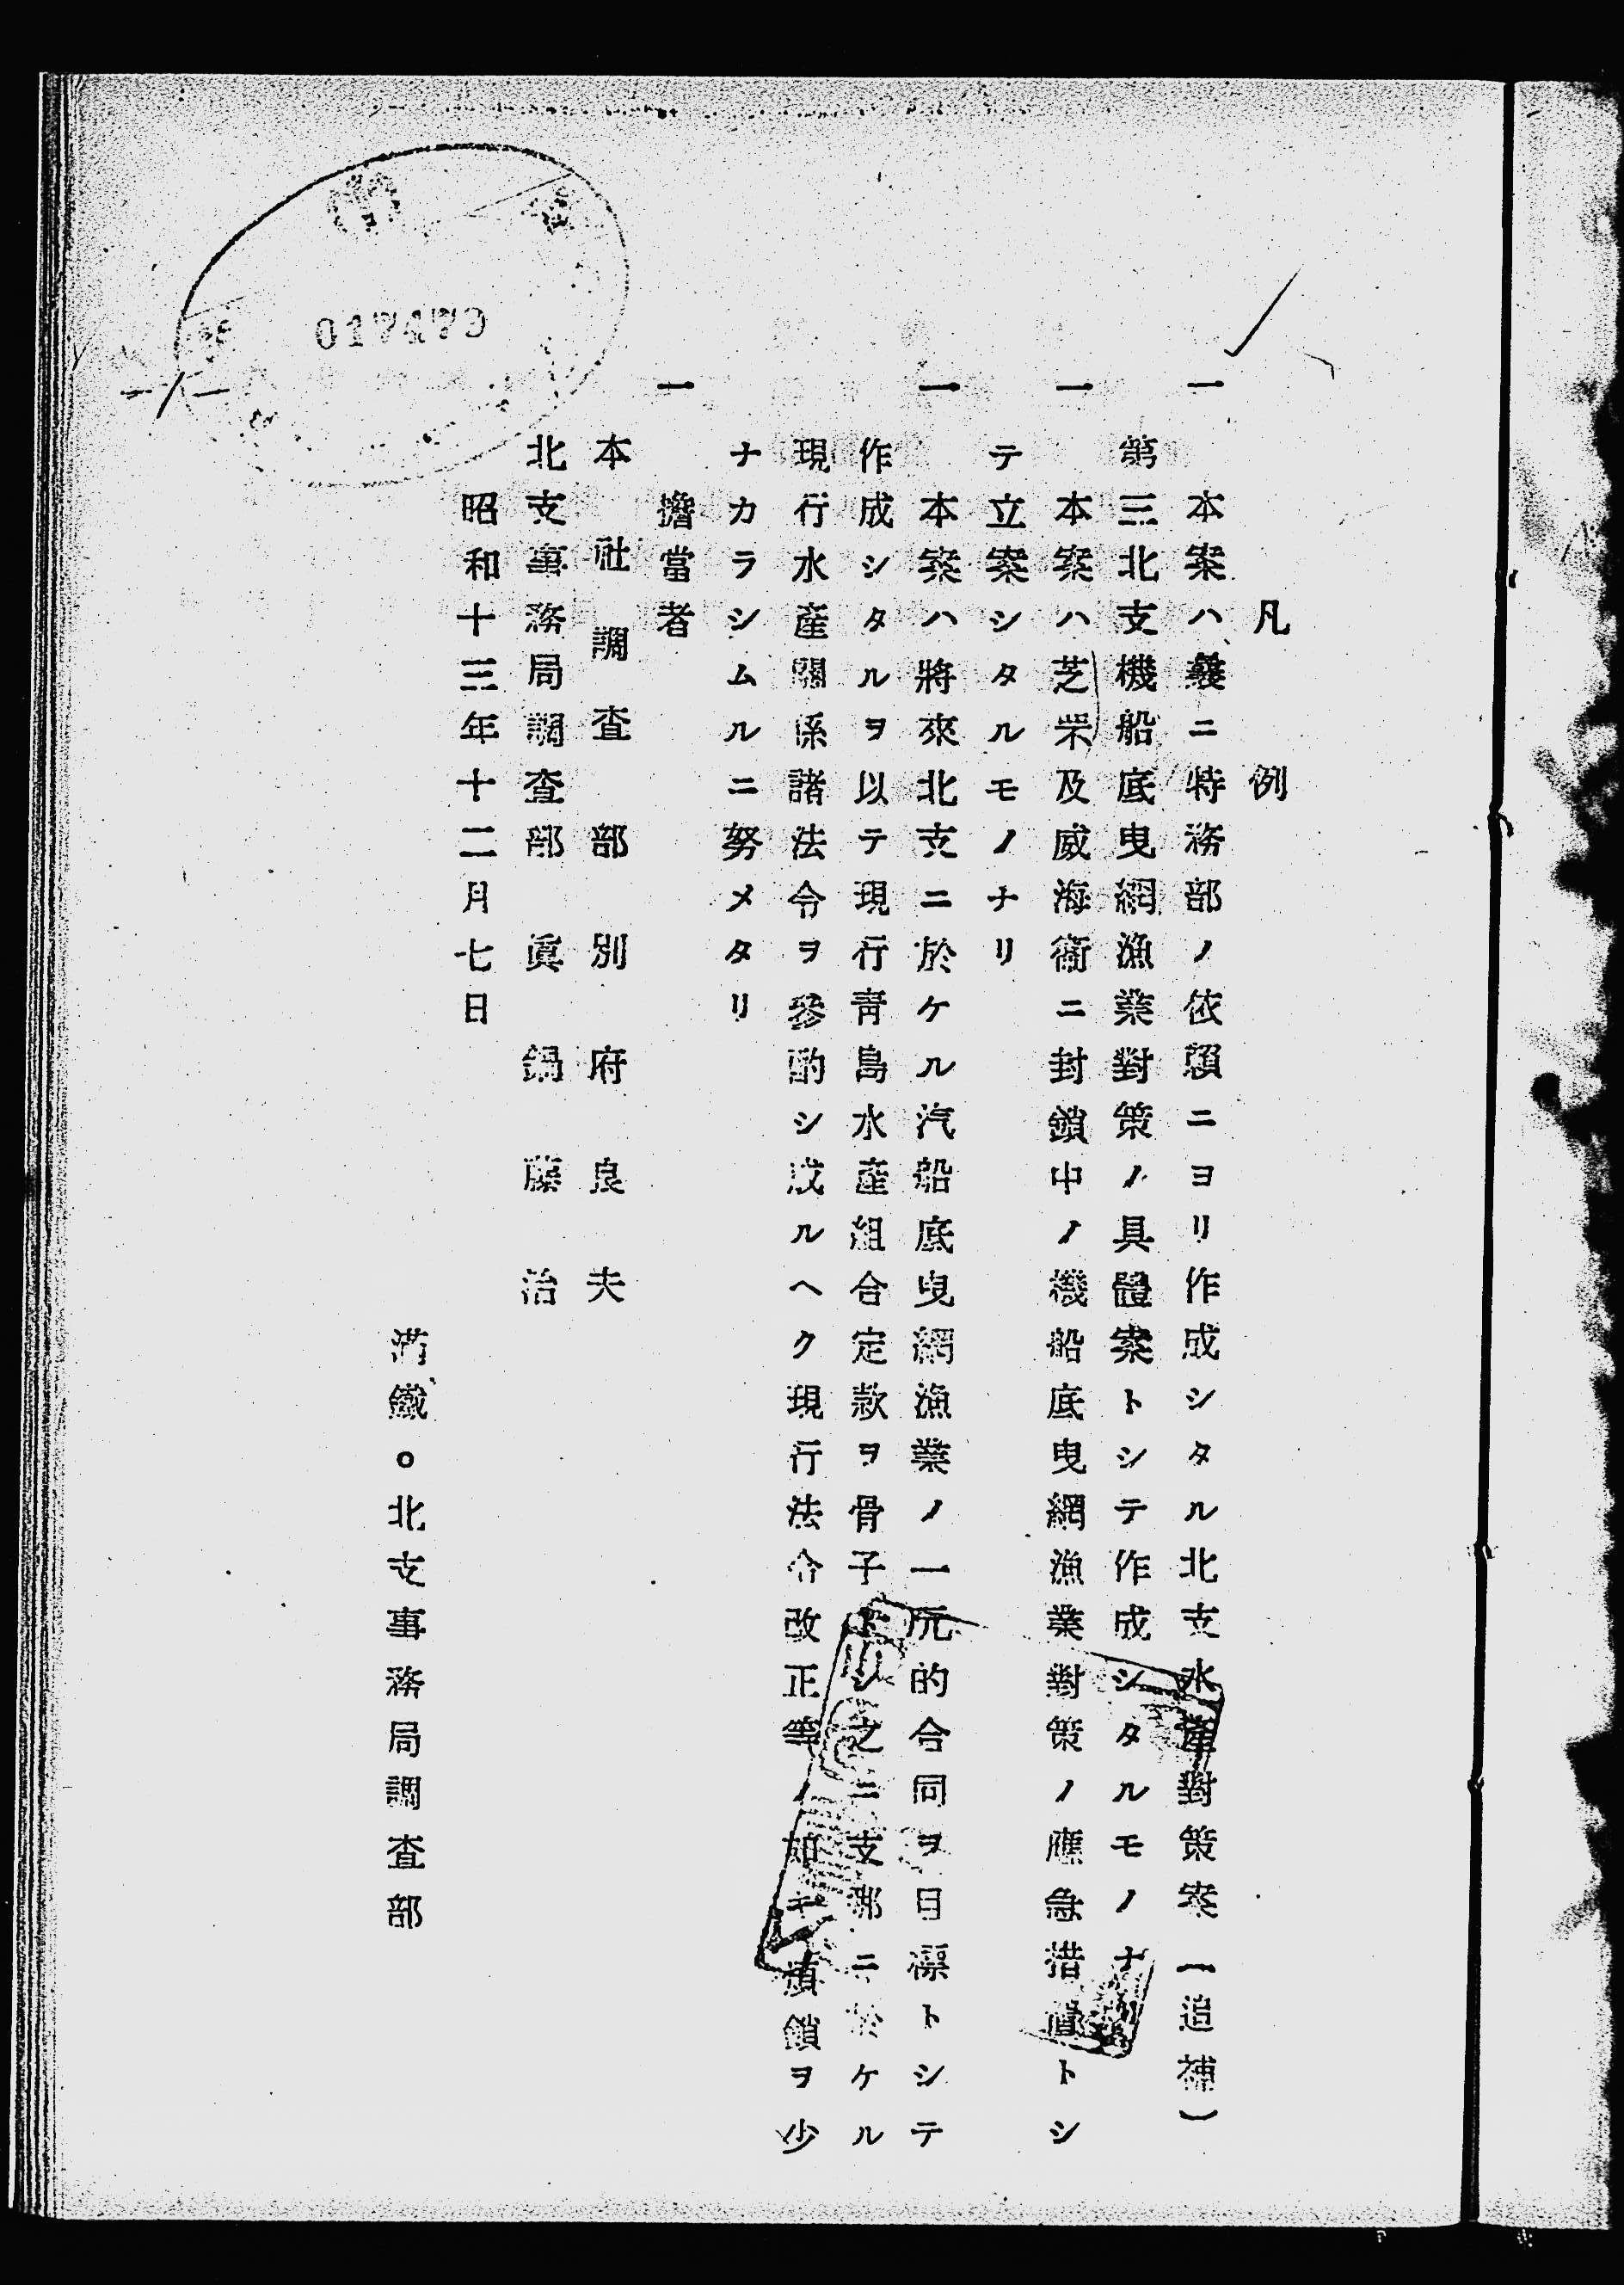 凡例
一 本案ハ曩ニ特務部ノ依頼ニヨリ作成シタル北支水産對策案(追補)
第三北支機船底曳網漁業對策ノ具體案トシテ作成シタルモノナリ
一 本案ハ芝罘及威海衞ニ封鎖中ノ機船底曳網漁業對策ノ應急措置トシ
テ立案シタルモノナリ
一 本案ハ將來北支ニ於ケル汽船底曳網漁業ノ一元的合同ヲ目標トシテ
作成シタルヲ以テ現行靑島水産組合定款ヲ骨子トシ之ニ支那ニ於ケル
現行水産關係諸法令ヲ參酌シ成ルヘク現行法令改正等ノ如キ煩鎖ヲ少
ナカラシムルニ努メタリ
一 擔當者
本社調査部 別府良夫
北支事務局調査部 眞鍋藤治
昭和十三年十二月七日
滿鐵。北支事務局調査部
017479